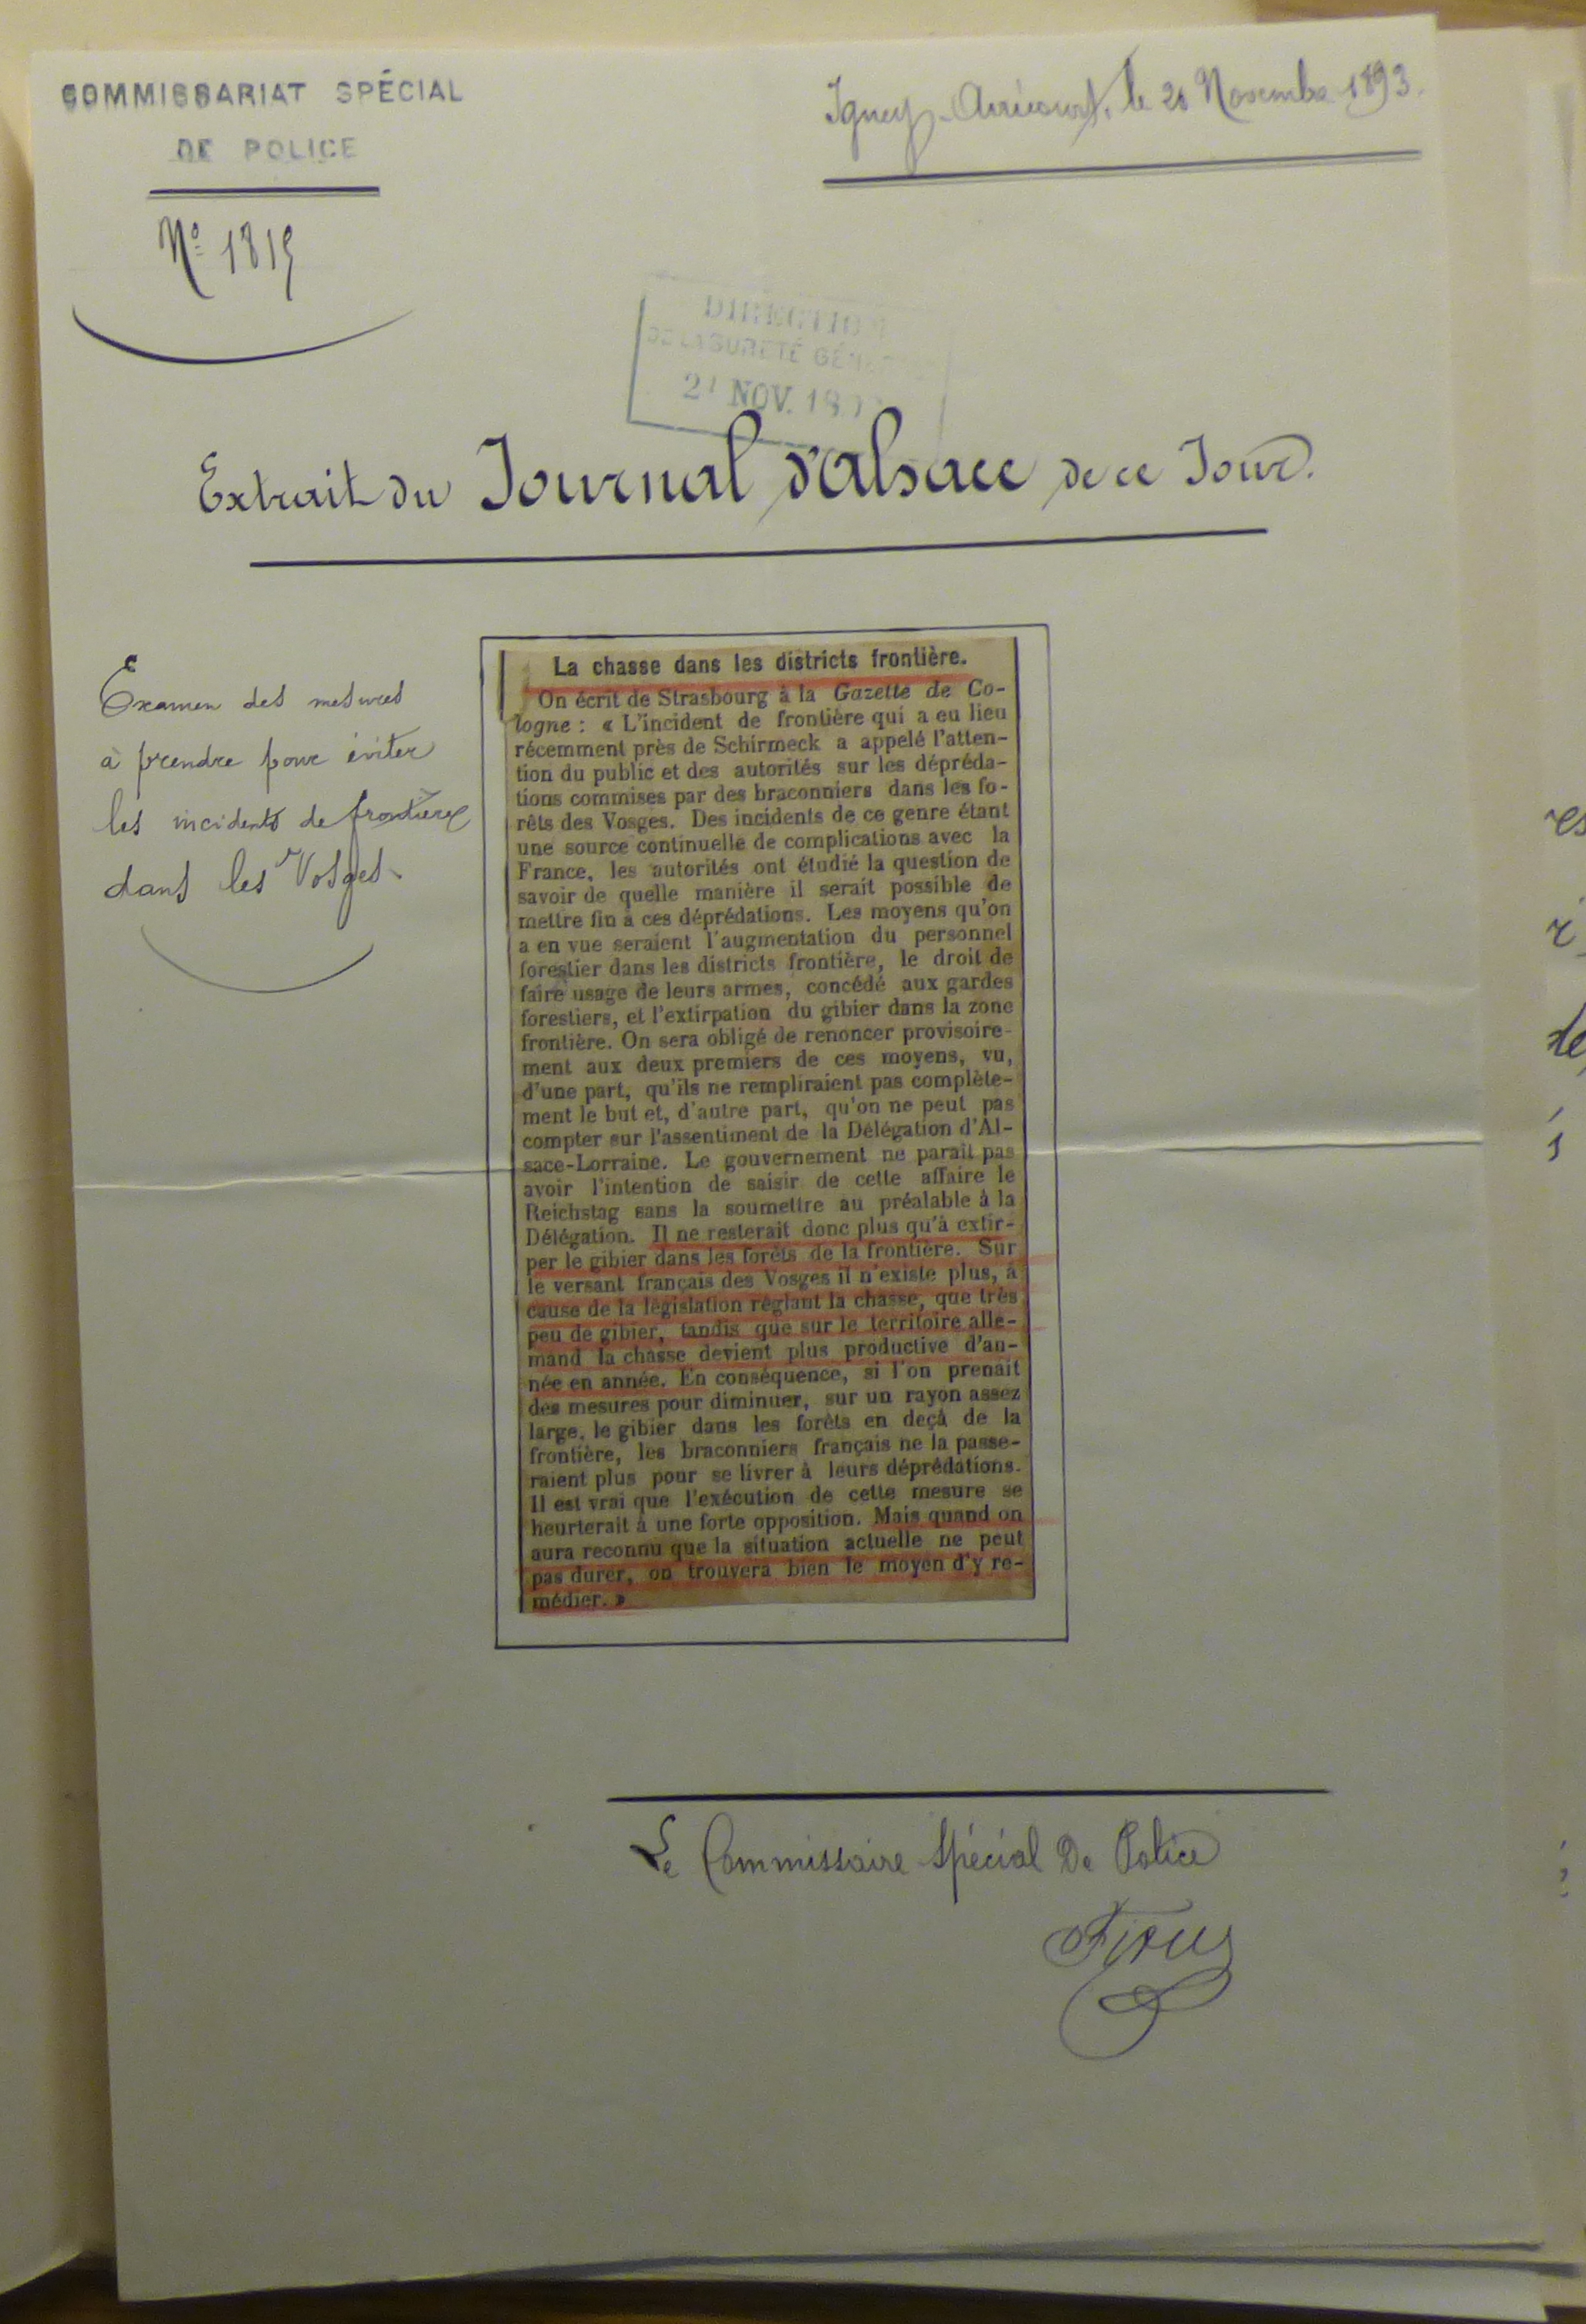 COMMISSARIAT SPÉCIAL
DE POLICE
Nº 1819
Igney-Avricourt, le 20 Novembre 1893.
DIRECTION
DE LA SURETÉ GÉN
21 NOV. 18
Extrait du Journal d'Alsace de ce Jour.
Examen des mesures
à prendre pour éviter
les incidents de frontière
dans les Vosges.
La chasse dans les districts frontière.
On écrit de Strasbourg à la Gazette de Co-
logne : « L'incident de frontière qui a eu lieu
récemment près de Schirmeck a appelé l'atten-
tion du public et des autorités sur les dépréda-
tions commises par des braconniers dans les fo-
rêts des Vosges. Des incidents de ce genre étant
une source continuelle de complications avec la
France, les autorités ont étudié la question de
savoir de quelle manière il serait possible de
mettre fin à ces déprédations. Les moyens qu'on
a en vue seraient l'augmentation du personnel
forestier dans les districts frontière, le droit de
faire usage de leurs armes, concédé aux gardes
forestiers, et l'extirpation du gibier dans la zone
frontière. On sera obligé de renoncer provisoire-
ment aux deux premiers de ces moyens, vu,
d'une part, qu'ils ne rempliraient pas complète-
ment le but et, d'autre part, qu'on ne peut pas
compter sur l'assentiment de la Délégation d'Al-
sace-Lorraine. Le gouvernement ne paraît pas
avoir l'intention de saisir de cette affaire le
Reichstag sans la soumettre au préalable à la
Délégation. Il ne resterait donc plus qu'à extir-
per le gibier dans les forêts de la frontière. Sur
le versant français des Vosges il n'existe plus, à
cause de la législation réglant la chasse, que très
peu de gibier, tandis que sur le territoire alle-
mand la chasse devient plus productive d'an-
née en année. En conséquence, si l'on prenait
des mesures pour diminuer, sur un rayon assez
large, le gibier dans les forêts en deçà de la
frontière, les braconniers français ne la passe-
raient plus pour se livrer à leurs déprédations.
Il est vrai que l'exécution de cette mesure se
heurterait à une forte opposition. Mais quand on
aura reconnu que la situation actuelle ne peut
pas durer, on trouvera bien le moyen d'y re-
médier. »
Le Commissaire Spécial De Police